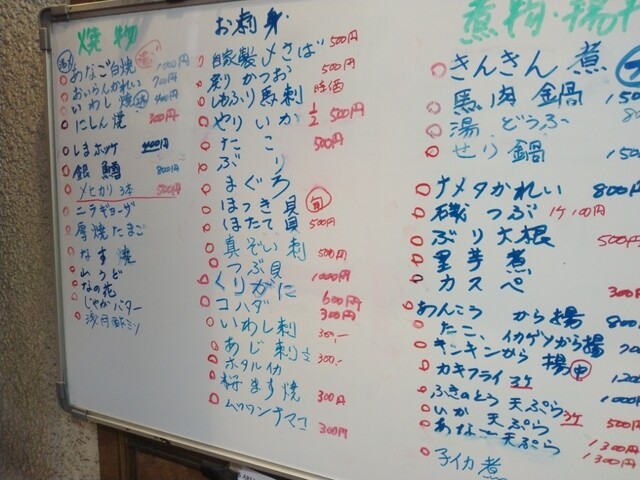 焼物
あなご白焼 1000円
おいらんかれい 700円
いわし焼 400円
にしん焼 300円
しまホッケ
銀鱈 800円
メヒカリ3本 500円
ニラギョーザ
厚焼たまご
なす焼
山うど
なの花
じゃがバター
お刺身
自家製〆さば 500円
炙りかつお 500円
しもふり馬刺 時価
やりいか 1/2 500円
たこ 500円
ぶり
まぐろ
ほっき貝 旬
ほたて貝 500円
真ぞい刺 500円
つぶ貝 1000円
くりがに 600円
コハダ 300円
いわし刺 300-
あじ刺 300-
ホタルイカ
ます焼 300円
ナマコ 300円
煮物・揚
きんきん煮
馬肉鍋 150
湯どうふ 80
せり鍋 150
ナメタかれい 800円
磯つぶ 1ケ100円
ぶり大根 500円
里芋煮
カスペ 300
あんこうから揚 800
たこ、イカゲソから揚 70
キンキンから揚 中
カキフライ3ケ 120
ふきのとう天ぷら 1000
いか天ぷら 3ケ 500
あなご天ぷら 1300円
1300円
子イカ煮